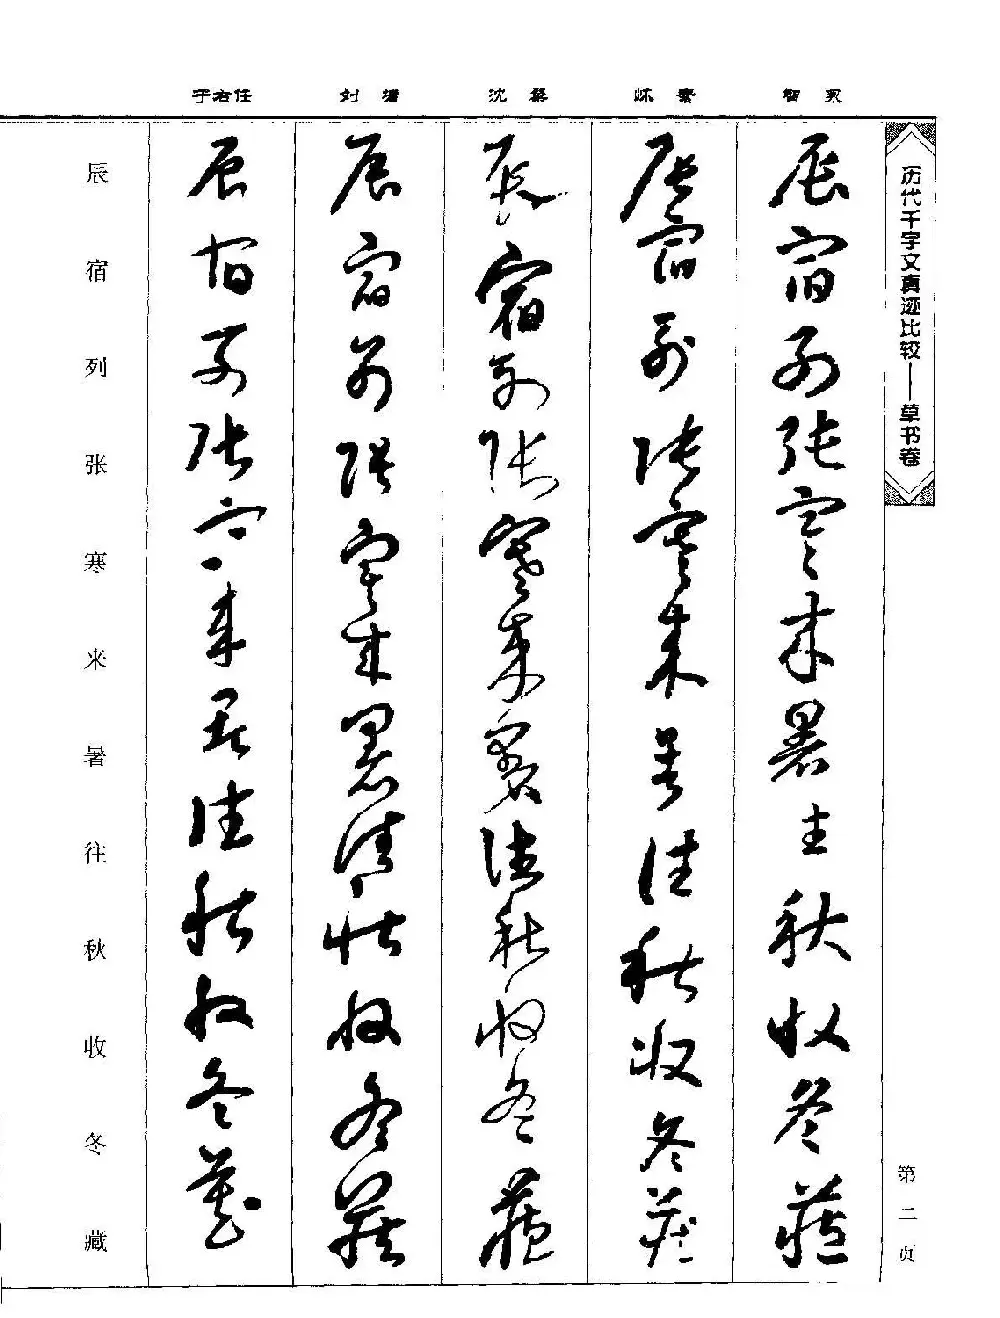 历代千字文真迹比较——草书卷
第二页
智永
辰宿列張寒來暑往秋收冬藏
怀素
辰宿列張寒來暑往秋收冬藏
沈粲
辰宿列張寒來暑往秋收冬藏
刘
辰宿列張寒來暑往秋收冬藏
于右任
辰宿列張寒來暑往秋收冬藏
辰宿列张寒来暑往秋收冬藏